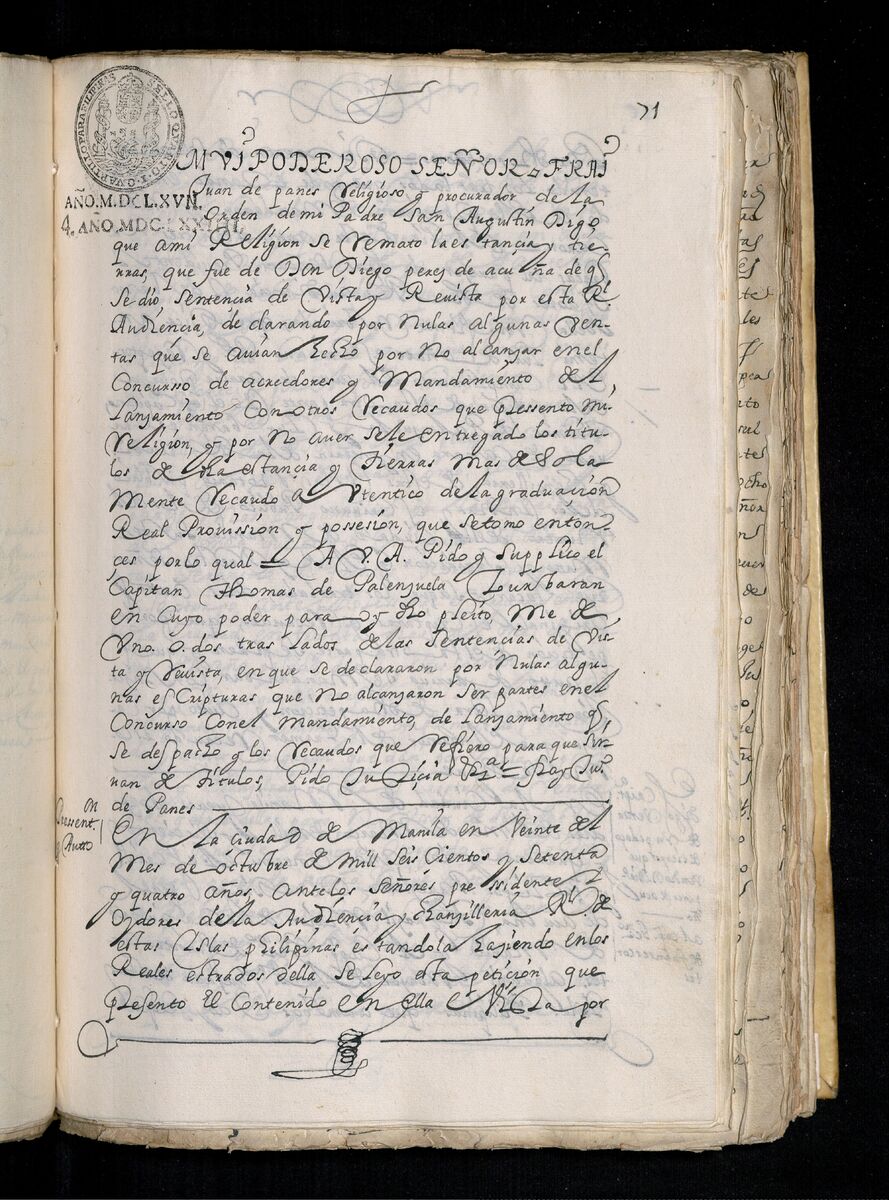 71
SELLO QVARTO, I. QVARTILLO PARA FILIPINAS
AÑO.M.DCLXVII.
4. AÑO.MDCLXXIIII.
MVI PODEROSO SEÑOR FRAI
Juan de panes Religioso y procurador de la
Orden de mi Padre San Augustin Digo
que ami Religion se Remato la estançia y tie-
rras, que fue de Don Diego peres de acuña de q̃
se dio sentencia de Vista y Revista por esta Rl
Audiencia, de clarando por Nulas algunas Ven-
tas que se avian hecho por No alcanzar en el
Concurso de acreedores y Mandamiento de
Lanzamiento Con otros Recaudos que pressento mi
Religion, y por No aver se le entregado los titu-
los de dha estançia y tierras mas de Sola
Mente Recaudo autentico de la graduaçion
Real Provission y possesion, que se tomo enton-
çes por lo qual = A V. A. Pido y Supplico el
Capitan Thomas de Palenzuela Zurbaran
en Cuyo poder para oy dho pleito, Me de
Vno. o. dos tras lados de las Sentencias de Vis-
ta y Revista, en que se declararon por Nulas algu-
nas esCripturas que No alcanzaron ser partes en el
Concurso Con el mandamiento, de Lanzamiento q̃
se despacho y los Recaudos que Refiero para que sir-
van de titulos, Pido Justiçia = fray Juo
de Panes
Pressent.on
Autto
En La ciudad de Manila en Veinte del
Mes de octubre de mill Seis Cientos y Setenta
y quatro años, ante los señores pressidente e
Oydores de la Audiençia y chanzilleria Rl. de
estas Yslas philipinas estandola haziendo en los
Reales estrados della se leyo esta petiçion que
presento El Contenido en ella e Vista por